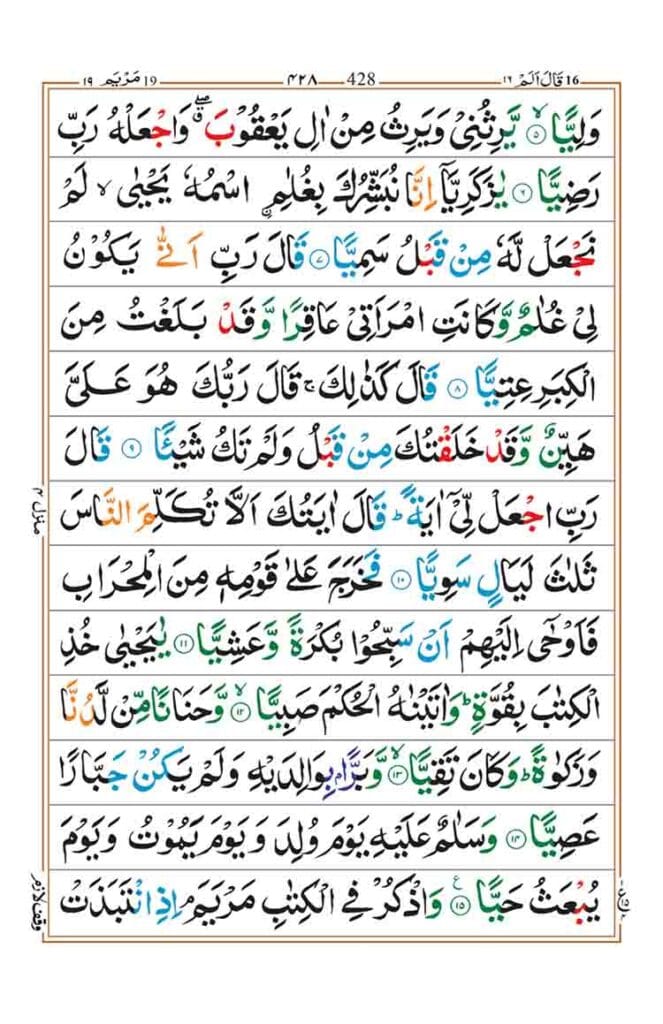 ١٩ مَرْيَم 19 ٤٢٨ 428 ١٦ قَالَ اَلَمْ 16
وَلِيًّا ۙ﴿۵﴾ يَّرِثُنِىْ وَيَرِثُ مِنْ اٰلِ يَعْقُوْبَ ۖق وَاجْعَلْهُ رَبِّ
رَضِيًّا ﴿۶﴾ يٰزَكَرِيَّاۤ اِنَّا نُبَشِّرُكَ بِغُلٰمِ ۨاسْمُهٗ يَحْيٰى ۙ لَمْ
نَجْعَلْ لَّهٗ مِنْ قَبْلُ سَمِيًّا ﴿۷﴾ قَالَ رَبِّ اَنّٰى يَكُوْنُ
لِىْ غُلٰمٌ وَّكَانَتِ امْرَاَتِىْ عَاقِرًا وَّقَدْ بَلَغْتُ مِنَ
الْكِبَرِ عِتِيًّا ﴿۸﴾ قَالَ كَذٰلِكَ ۚ قَالَ رَبُّكَ هُوَ عَلَىَّ
هَيِّنٌ وَّقَدْ خَلَقْتُكَ مِنْ قَبْلُ وَلَمْ تَكُ شَيْـًٔا ﴿۹﴾ قَالَ
رَبِّ اجْعَلْ لِّىْۤ اٰيَةً ؕ قَالَ اٰيَتُكَ اَلَّا تُكَلِّمَ النَّاسَ
ثَلٰثَ لَيَالٍ سَوِيًّا ﴿۱۰﴾ فَخَرَجَ عَلٰى قَوْمِهٖ مِنَ الْمِحْرَابِ
فَاَوْحٰۤى اِلَيْهِمْ اَنْ سَبِّحُوْا بُكْرَةً وَّعَشِيًّا ﴿۱۱﴾ يٰيَحْيٰى خُذِ
الْكِتٰبَ بِقُوَّةٍ ؕ وَاٰتَيْنٰهُ الْحُكْمَ صَبِيًّا ۙ﴿۱۲﴾ وَّحَنَانًا مِّنْ لَّدُنَّا
وَزَكٰوةً ؕ وَكَانَ تَقِيًّا ۙ﴿۱۳﴾ وَّبَرًّۢا بِوَالِدَيْهِ وَلَمْ يَكُنْ جَبَّارًا
عَصِيًّا ﴿۱۴﴾ وَسَلٰمٌ عَلَيْهِ يَوْمَ وُلِدَ وَيَوْمَ يَمُوْتُ وَيَوْمَ
يُبْعَثُ حَيًّا ﴿۱۵﴾ع وَاذْكُرْ فِى الْكِتٰبِ مَرْيَمَ ۘ اِذِ انْتَبَذَتْ
منزل ۴
وقف لازم